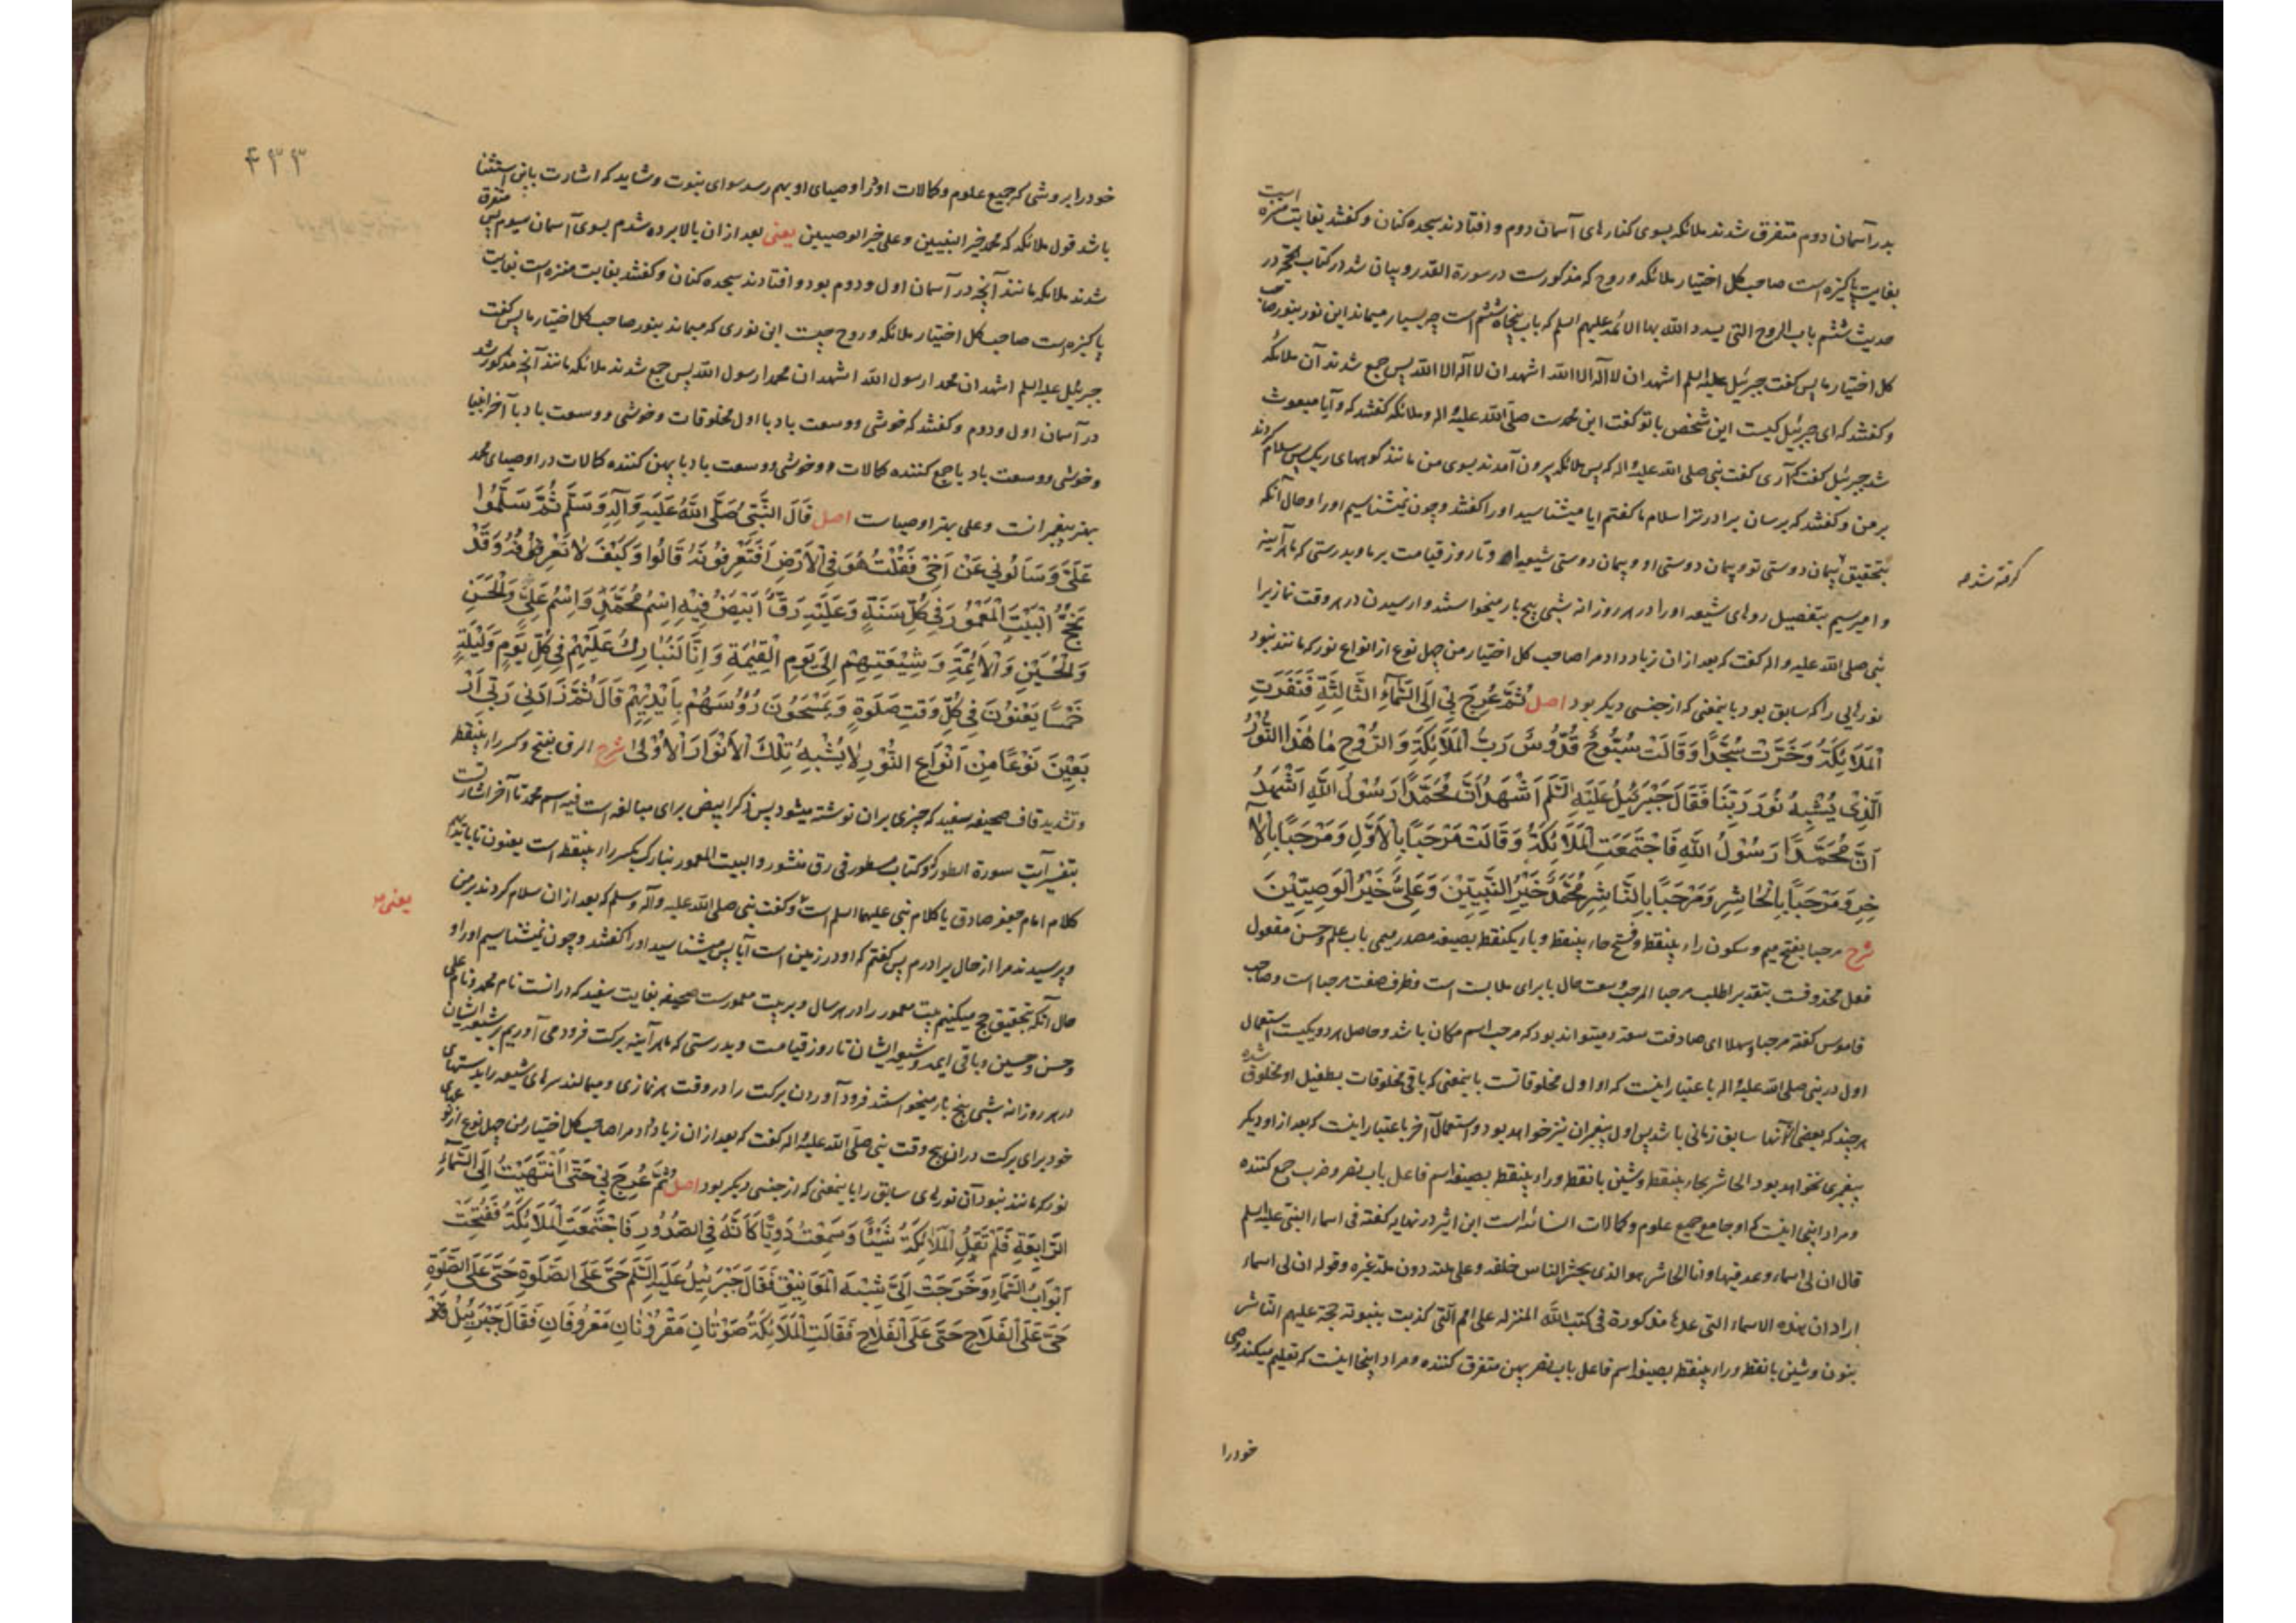 بدر آسمان دوم متفرق شدند ملائکه بسوی کنارهای آسمان دوم و افتادند سجده کنان و گفتند بغایت منزه است
بغایت پاکیزه است صاحب کل اختیار ملائکه و روح که مذکورست در سورة القدر و بیان شد در کتاب الحجة در
حدیث ششم باب الروح التی یسدد الله بها الائمة علیهم السلم که باب پنجاه ششم است چه بسیار میماند این نور بنور صاحب
کل اختیار ما پس گفت جبرئیل علیه السلم اشهد ان لا اله الا الله اشهد ان لا اله الا الله پس جمع شدند آن ملائکه
و گفتند که ای جبرئیل کیست این شخص با تو گفت این محمدست صلی الله علیه و اله و ملائکه گفتند که و آیا مبعوث
شد جبرئیل گفت که آری گفت نبی صلی الله علیه و اله که پس ملائکه بیرون آمدند بسوی من مانند گوههای ریک پس سلام کردند
بر من و گفتند که برسان برادر ترا سلام ما گفتم ایا میشناسید او را گفتند و چون نمیشناسیم او را و حال آنکه
بتحقیق پیمان دوستی تو و پیمان دوستی او و پیمان دوستی شیعه او تا روز قیامت بر ما و بدرستی که ما هر آینه
گرفته شده
وامیرسیم بتفصیل روهای شیعه او را در هر روزانه شبی پنج بار میخواستند وارسیدن در هر وقت نماز یرا
نبی صلی الله علیه و اله گفت که بعد از ان زیاد داد مرا صاحب کل اختیار من چهل نوع از انواع نور که مانند نبود
نورهایی را که سابق بود باینمعنی که از جنسی دیگر بود اصل ثُمَّ عُرِجَ بِی اِلَی السَّمَاءِ الثَّالِثَةِ فَنَفَرَتِ
الْمَلَائِکَةُ وَخَرَّتْ سُجَّدًا وَقَالَتْ سُبُّوحٌ قُدُّوسٌ رَبُّ الْمَلَائِکَةِ وَالرُّوحِ مَا هٰذَا النُّورُ
الَّذِی یُشْبِهُ نُورَ رَبِّنَا فَقَالَ جَبْرَئِیلُ عَلَیْهِ السَّلَم اَشْهَدُ اَنَّ مُحَمَّدًا رَسُولُ اللهِ اَشْهَدُ
اَنَّ مُحَمَّدًا رَسُولُ اللهِ فَاجْتَمَعَتِ الْمَلَائِکَةُ وَقَالَتْ مَرْحَبًا بِالْاَوَّلِ وَمَرْحَبًا بِالْآ
خِرِ وَمَرْحَبًا بِالْحَاشِرِ وَمَرْحَبًا بِالنَّاشِرِ مُحَمَّدٌ خَیْرُ النَّبِیِّینَ وَعَلِیٌّ خَیْرُ الْوَصِیِّینَ
شرح مرحبا بفتح میم و سکون راء بینقطه و فتح حاء بینقطه و باء یکنقطه بصیغه مصدر میمی باب علم و حسن مفعول
فعل محذوفست بتقدیر اطلب مرحبا المرحب وسعت حال با برای ملابست است و ظرف صفت مرحبا است و صاحب
قاموس گفته مرحبا و سهلا ای صادفت سعة و میتواند بود که مرحب اسم مکان باشد و حاصل هر دو یکیست استعمال
اول در نبی صلی الله علیه و اله باعتبار اینست که او اول مخلوقاتست باینمعنی که باقی مخلوقات بطفیل او مخلوق شده
هر چند که بعضی آنها سابق زمانی باشد پس اول پیغمبران نیز خواهد بود و استعمال آخر باعتبار اینست که بعد از او دیگر
پیغمبری نخواهد بود الحاشر بحاء بینقطه و شین بانقطه و راء بینقطه بصیغه اسم فاعل باب نصر و ضرب جمع کننده
و مراد اینجا اینست که او جامع جمیع علوم و کمالات انسانی است ابن اثیر در نهایه گفته فی اسماء النبی علیه السلم
قال ان لی اسماء و عد فیها و انا الحاشر هو الذی یحشر الناس خلفه و علی ملته دون ملة غیره و قوله ان لی اسماء
اراد ان هذه الاسماء التی عدها مذکورة فی کتب الله المنزله علی الامم التی کذبت بنبوته حجة علیهم الناشر
بنون و شین بانقطه و راء بینقطه بصیغه اسم فاعل باب نصر پهن متفرق کننده و مراد اینجا اینست که تعلیم میکند وصی
خود را
۴۳۳
خود را بروشی که جمیع علوم و کمالات او را اوصیای او بهم رسد سوای نبوت و شاید که اشارت باین استثنا
باشد قول ملائکه که محمد خیر النبیین و علی خیر الوصیین یعنی بعد از ان بالا برده شدم بسوی آسمان سیوم پس متفرق
شدند ملائکه مانند آنچه در آسمان اول و دوم بود و افتادند سجده کنان و گفتند بغایت منزه است بغایت
پاکیزه است صاحب کل اختیار ملائکه و روح چیست این نوری که میماند بنور صاحب کل اختیار ما پس گفت
جبرئیل علیه السلم اشهد ان محمدا رسول الله اشهد ان محمدا رسول الله پس جمع شدند ملائکه مانند آنچه مذکور شد
در آسمان اول و دوم و گفتند که خوشی و وسعت باد با اول مخلوقات و خوشی و وسعت باد با آخر انبیا
و خوشی و وسعت باد با جمع کننده کمالات و خوشی و وسعت باد با پهن کننده کمالات در اوصیای محمد
بهتر پیغمبرانست و علی بهتر اوصیاست اصل قَالَ النَّبِیُّ صَلَّی اللهُ عَلَیْهِ وَآلِهِ وَسَلَّم ثُمَّ سَلَّمُوا
عَلَیَّ وَسَأَلُونِی عَنْ اَخِی فَقُلْتُ هُوَ فِی الْاَرْضِ اَفَتَعْرِفُونَهُ قَالُوا وَکَیْفَ لَا نَعْرِفُهُ وَقَدْ
نَحُجُّ الْبَیْتَ الْمَعْمُورَ فِی کُلِّ سَنَةٍ وَعَلَیْهِ رَقٌّ اَبْیَضُ فِیهِ اِسْمُ مُحَمَّدٍ وَاِسْمُ عَلِیٍّ وَالْحَسَنِ
وَالْحُسَیْنِ وَالْاَئِمَّةِ وَشِیعَتِهِمْ اِلَی یَوْمِ الْقِیٰمَةِ وَاِنَّا لَنُبَارِكُ عَلَیْهِمْ فِی کُلِّ یَوْمٍ وَلَیْلَةٍ
خَمْسًا یَعْنُونَ فِی کُلِّ وَقْتِ صَلٰوةٍ وَیَمْسَحُونَ رُؤُسَهُمْ بِاَیْدِیهِمْ قَالَ ثُمَّ زَادَنِی رَبِّی اَرْ
بَعِینَ نَوْعًا مِنْ اَنْوَاعِ النُّورِ لَا یُشْبِهُ تِلْكَ الْاَنْوَارَ الْاُوْلٰی شرح الرق بفتح و کسر راء بینقطه
و تشدید قاف صحیفه سفید که چیزی بران نوشته میشود پس ذکر ابیض برای مبالغه است فیه اسم محمد تا آخر اشارتست
بتفسیر آیت سورة الطور که و کتاب مسطور فی رق منشور و البیت المعمور نبارک بکسر راء بینقطه است یعنون تا بایدیهم
کلام امام جعفر صادق یا کلام نبی علیهما السلم است و گفت نبی صلی الله علیه و آله و سلم که بعد از ان سلام کردند بر من
یعنی
و پرسیدند مرا از حال برادرم پس گفتم که او در زمین است آیا پس میشناسید او را گفتند و چون نمیشناسیم او را و
حال آنکه بتحقیق حج میکنیم بیت معمور را در هر سال و بر بیت معمورست صحیفه بغایت سفید که در انست نام محمد و نام علی
و حسن و حسین و باقی ایمه و شیعه ایشان تا روز قیامت و بدرستی که ما هر آینه برکت فرود می آوریم بر شیعه ایشان
در هر روزانه شبی پنج بار میخواستند فرود آوردن برکت را در وقت هر نمازی و میمالند سرهای شیعه را بدستهای
خود برای برکت دران پنج وقت نبی صلی الله علیه و اله گفت که بعد از ان زیاد داد مرا صاحب کل اختیار من چهل نوع از انواع
نور که مانند نبود آن نورهای سابق را باینمعنی که از جنسی دیگر بود اصل ثُمَّ عُرِجَ بِی حَتَّی انْتَهَیْتُ اِلَی السَّمَاءِ
الرَّابِعَةِ فَلَمْ تَقُلِ الْمَلَائِکَةُ شَیْئًا وَسَمِعْتُ دَوِیًّا کَاَنَّهُ فِی الصُّدُورِ فَاجْتَمَعَتِ الْمَلَائِکَةُ فَفُتِحَتْ
اَبْوَابُ السَّمَاءِ وَخَرَجَتْ اِلَیَّ شِبْهَ الْمَعَانِیقِ فَقَالَ جَبْرَئِیلُ عَلَیْهِ السَّلَم حَیَّ عَلَی الصَّلٰوةِ حَیَّ عَلَی الصَّلٰوةِ
حَیَّ عَلَی الْفَلَاحِ حَیَّ عَلَی الْفَلَاحِ فَقَالَتِ الْمَلَائِکَةُ صَوْتَانِ مَقْرُونَانِ مَعْرُوفَانِ فَقَالَ جَبْرَئِیلُ قَدْ